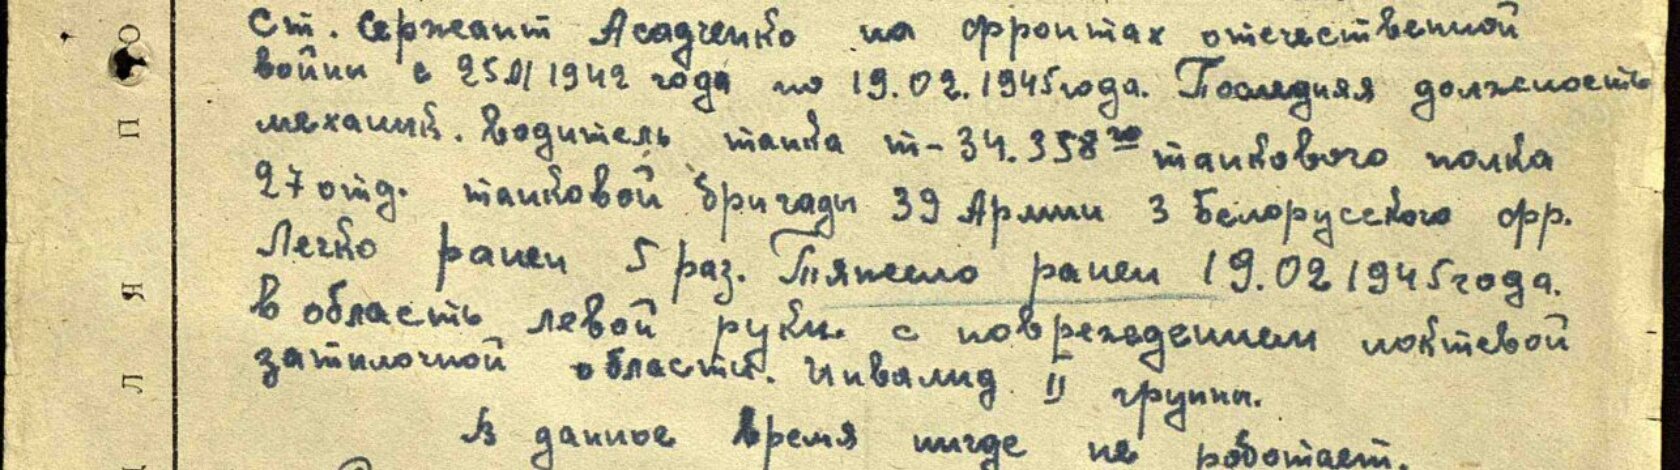 О
П
Я
Л
Ст. Сержант Асадченко на фронтах отечественной
войны с 25.VI 1942 года по 19.02.1945 года. Последняя должность
механик. водитель танка т-34. 358го танкового полка
27 отд. танковой бригады 39 Армии 3 Белорусского фр.
Легко ранен 5 раз. Тяжело ранен 19.02 1945 года.
в область левой руки с повреждением локтевой
затилочной области. Инвалид II группы.
В данное время нигде не работает.